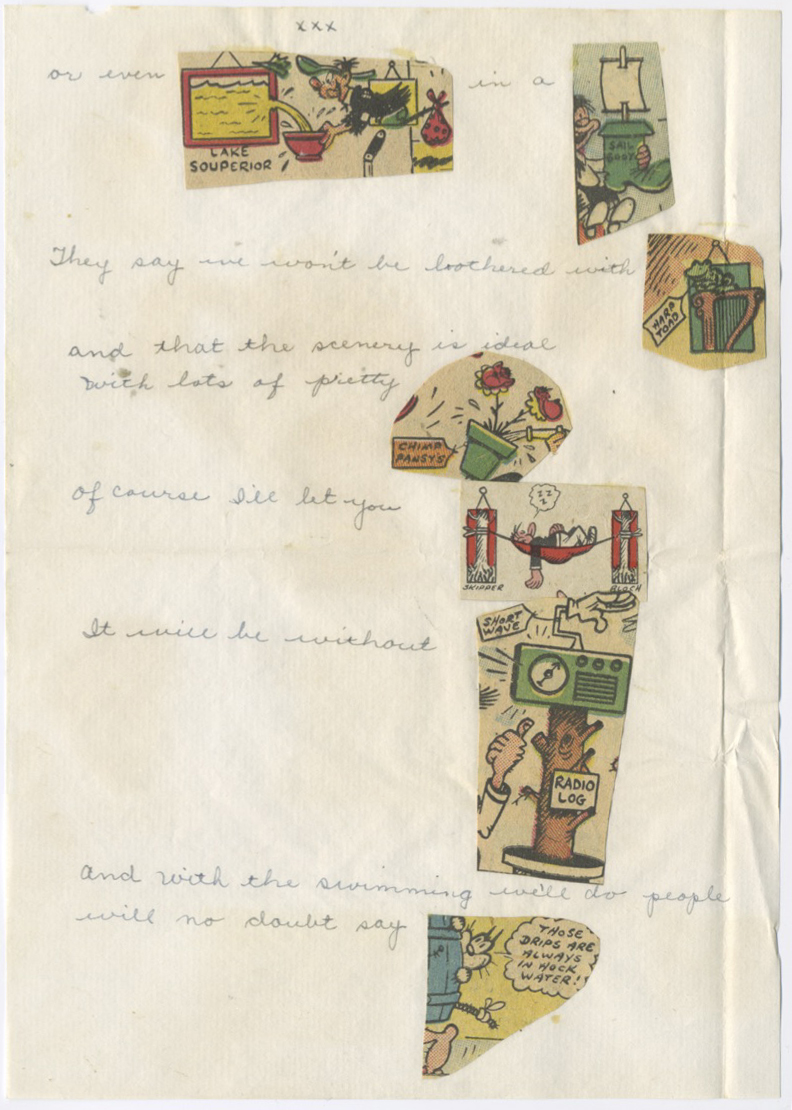 xxx
or even
LAKE
SOUPERIOR
in a
SAIL
BODY
They say we won't be bothered with
HARP
TOAD
and that the scenery is ideal
with lots of pretty
CHIMP
PANSY'S
Of course I'll let you
ZZ
Z
SKIPPER
BLOCH
It will be without
SHORT
WAVE
RADIO
LOG
and with the swimming we'll do people
will no doubt say
THOSE
DRIPS ARE
ALWAYS
IN HOCK
WATER!